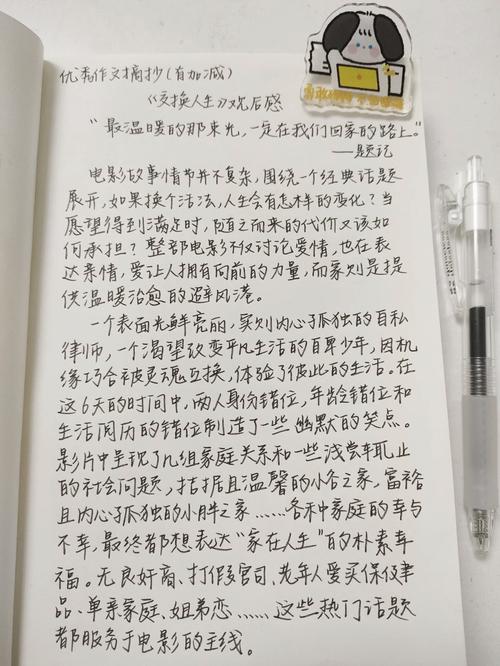 优秀作文摘抄(有加减)
《交换人生》观后感
"最温暖的那束光,一定在我们回家的路上。"
——题记
电影故事情节并不复杂,围绕一个经典话题
展开,如果换个活法,人生会有怎样的变化?当
愿望得到满足时,随之而来的代价又该如
何承担?整部电影不仅讨论爱情,也在表
达亲情,爱让人拥有向前的力量,而家则是提
供温暖治愈的避风港。
一个表面光鲜亮丽,实则内心孤独的自私
律师,一个渴望改变平凡生活的自卑少年,因机
缘巧合被灵魂互换,体验了彼此的生活。在
这6天的时间中,两人身份错位,年龄错位和
生活阅历的错位制造了一些幽默的笑点。
影片中呈现了几组家庭关系和一些浅尝辄止
的社会问题,拮据且温馨的小谷之家,富裕
且内心孤独的小胖之家……各种家庭的幸与
不幸,最终都想表达"家在人生"的朴素幸
福。无良奸商、打假官司、老年人爱买保健
品、单亲家庭、姐弟恋……这些热门话题
都服务于电影的主线。